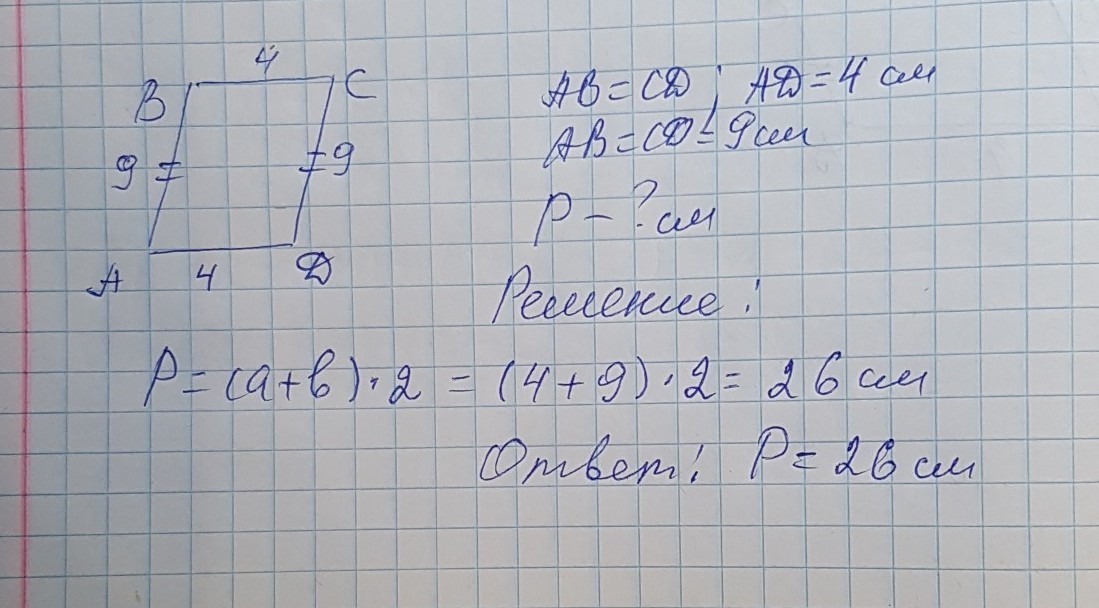 4
B C AB = CD; AD = 4 см
9 9 AB = CD = 9 см
P - ? см
A 4 D
Решение:
P = (a + b) · 2 = (4 + 9) · 2 = 26 см
Ответ: P = 26 см